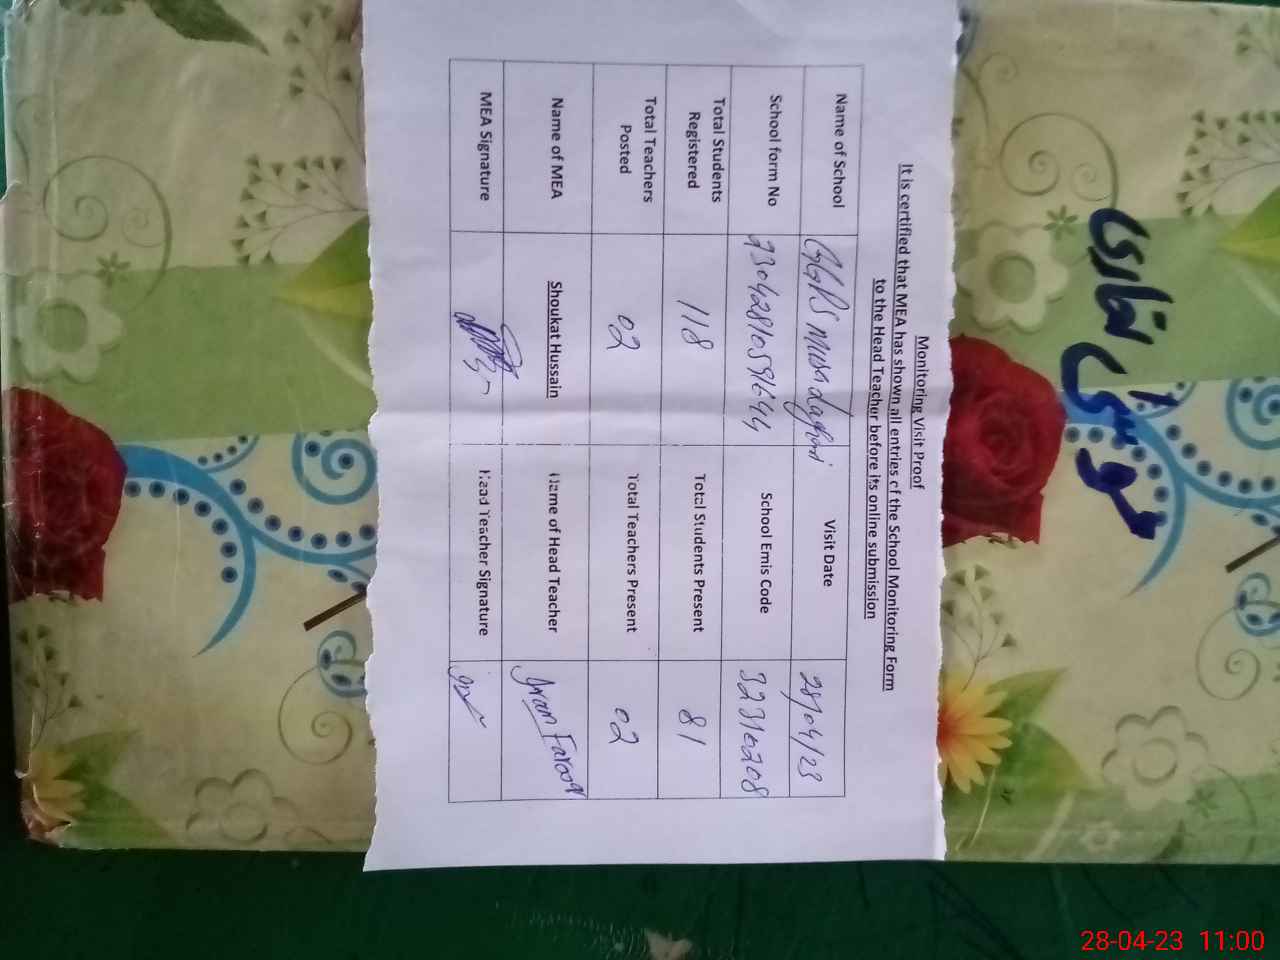 Monitoring Visit Proof
It is certified that MEA has shown all entries of the School Monitoring Form
to the Head Teacher before its online submission
Name of School GGPS Visit Date 28/04/23
School form No School Emis Code 32310208
Total Students Registered 118 Total Students Present 81
Total Teachers Posted 02 Total Teachers Present 02
Name of MEA Shoukat Hussain Name of Head Teacher Iram Farooq
MEA Signature Head Teacher Signature
28-04-23 11:00